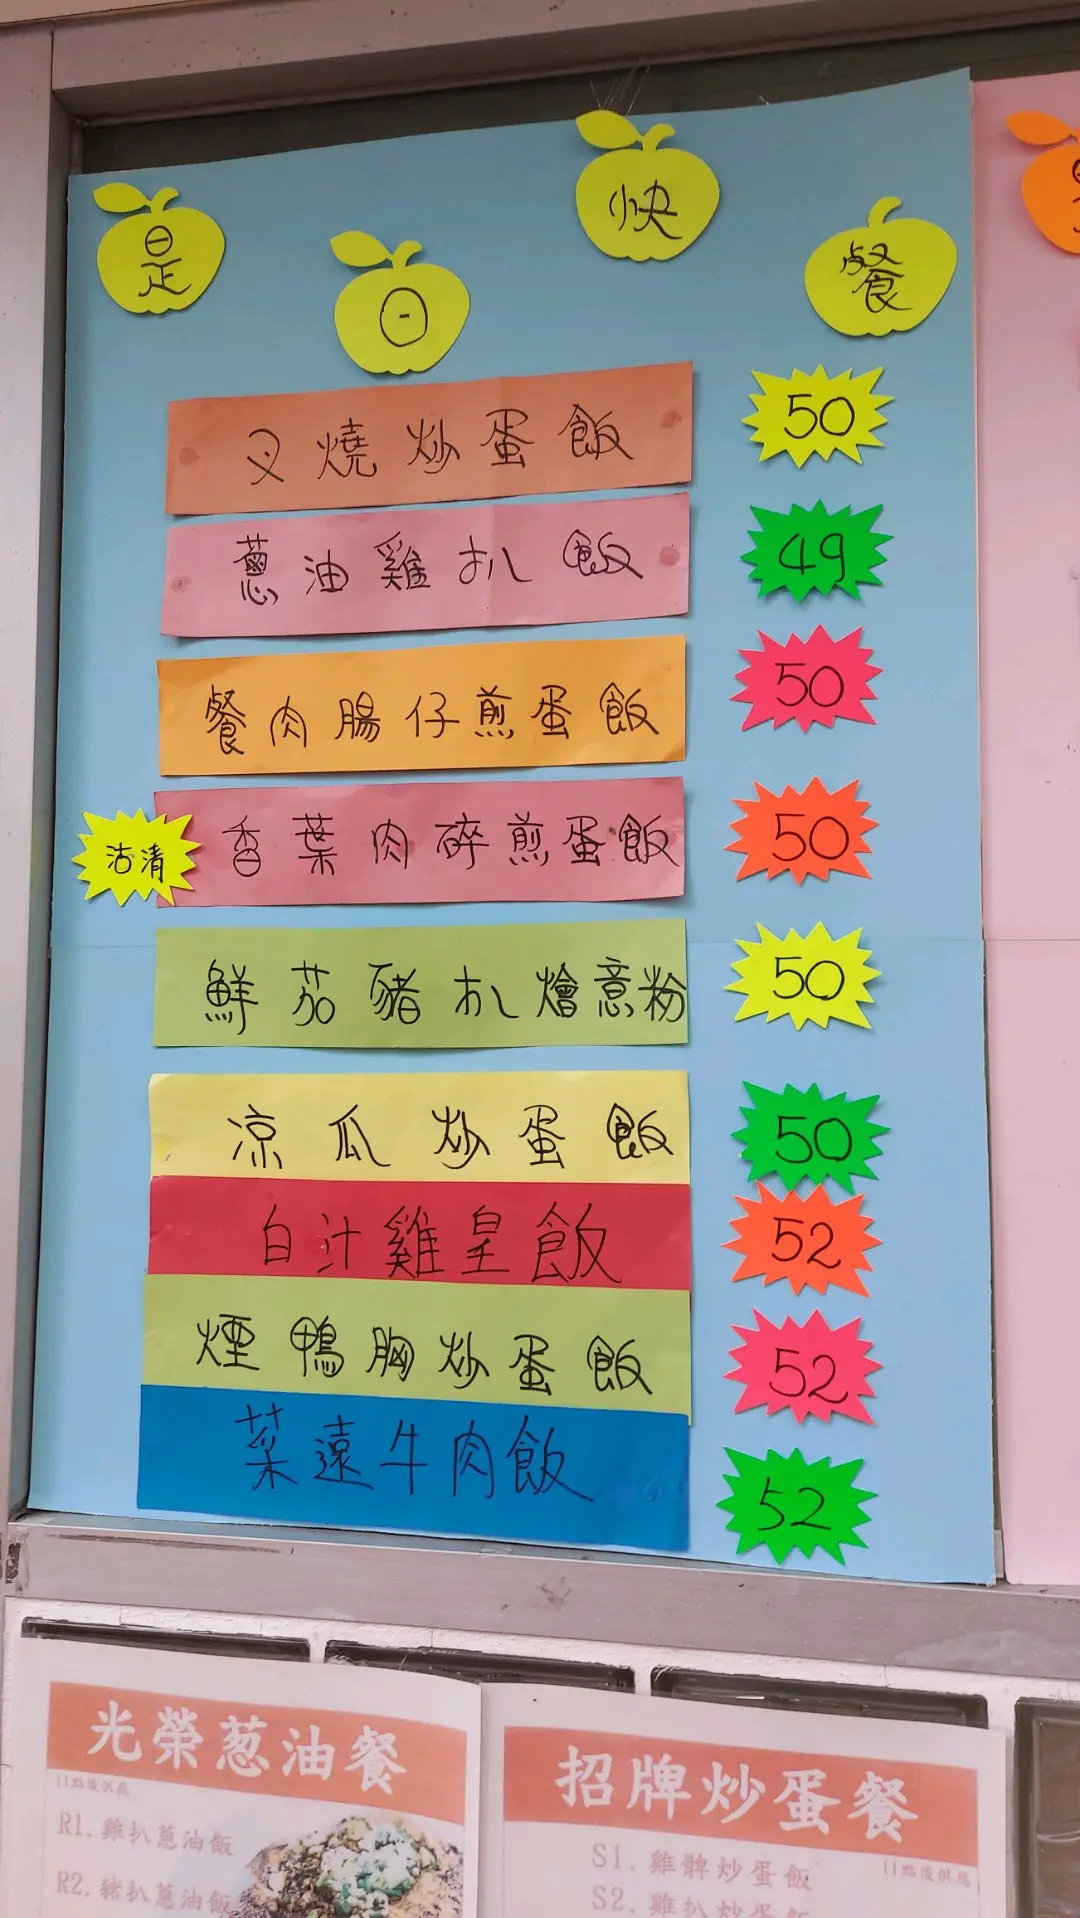 是日快餐
叉燒炒蛋飯 50
蔥油雞扒飯 49
餐肉腸仔煎蛋飯 50
沽清 香葉肉碎煎蛋飯 50
鮮茄豬扒燴意粉 50
凉瓜炒蛋飯 50
白汁雞皇飯 52
煙鴨胸炒蛋飯 52
菜遠牛肉飯 52
光榮葱油餐
11點後供應
R1. 雞扒蔥油飯
R2. 豬扒蔥油飯
招牌炒蛋餐
11點後供應
S1. 雞髀炒蛋飯
S2. 雞扒炒蛋飯